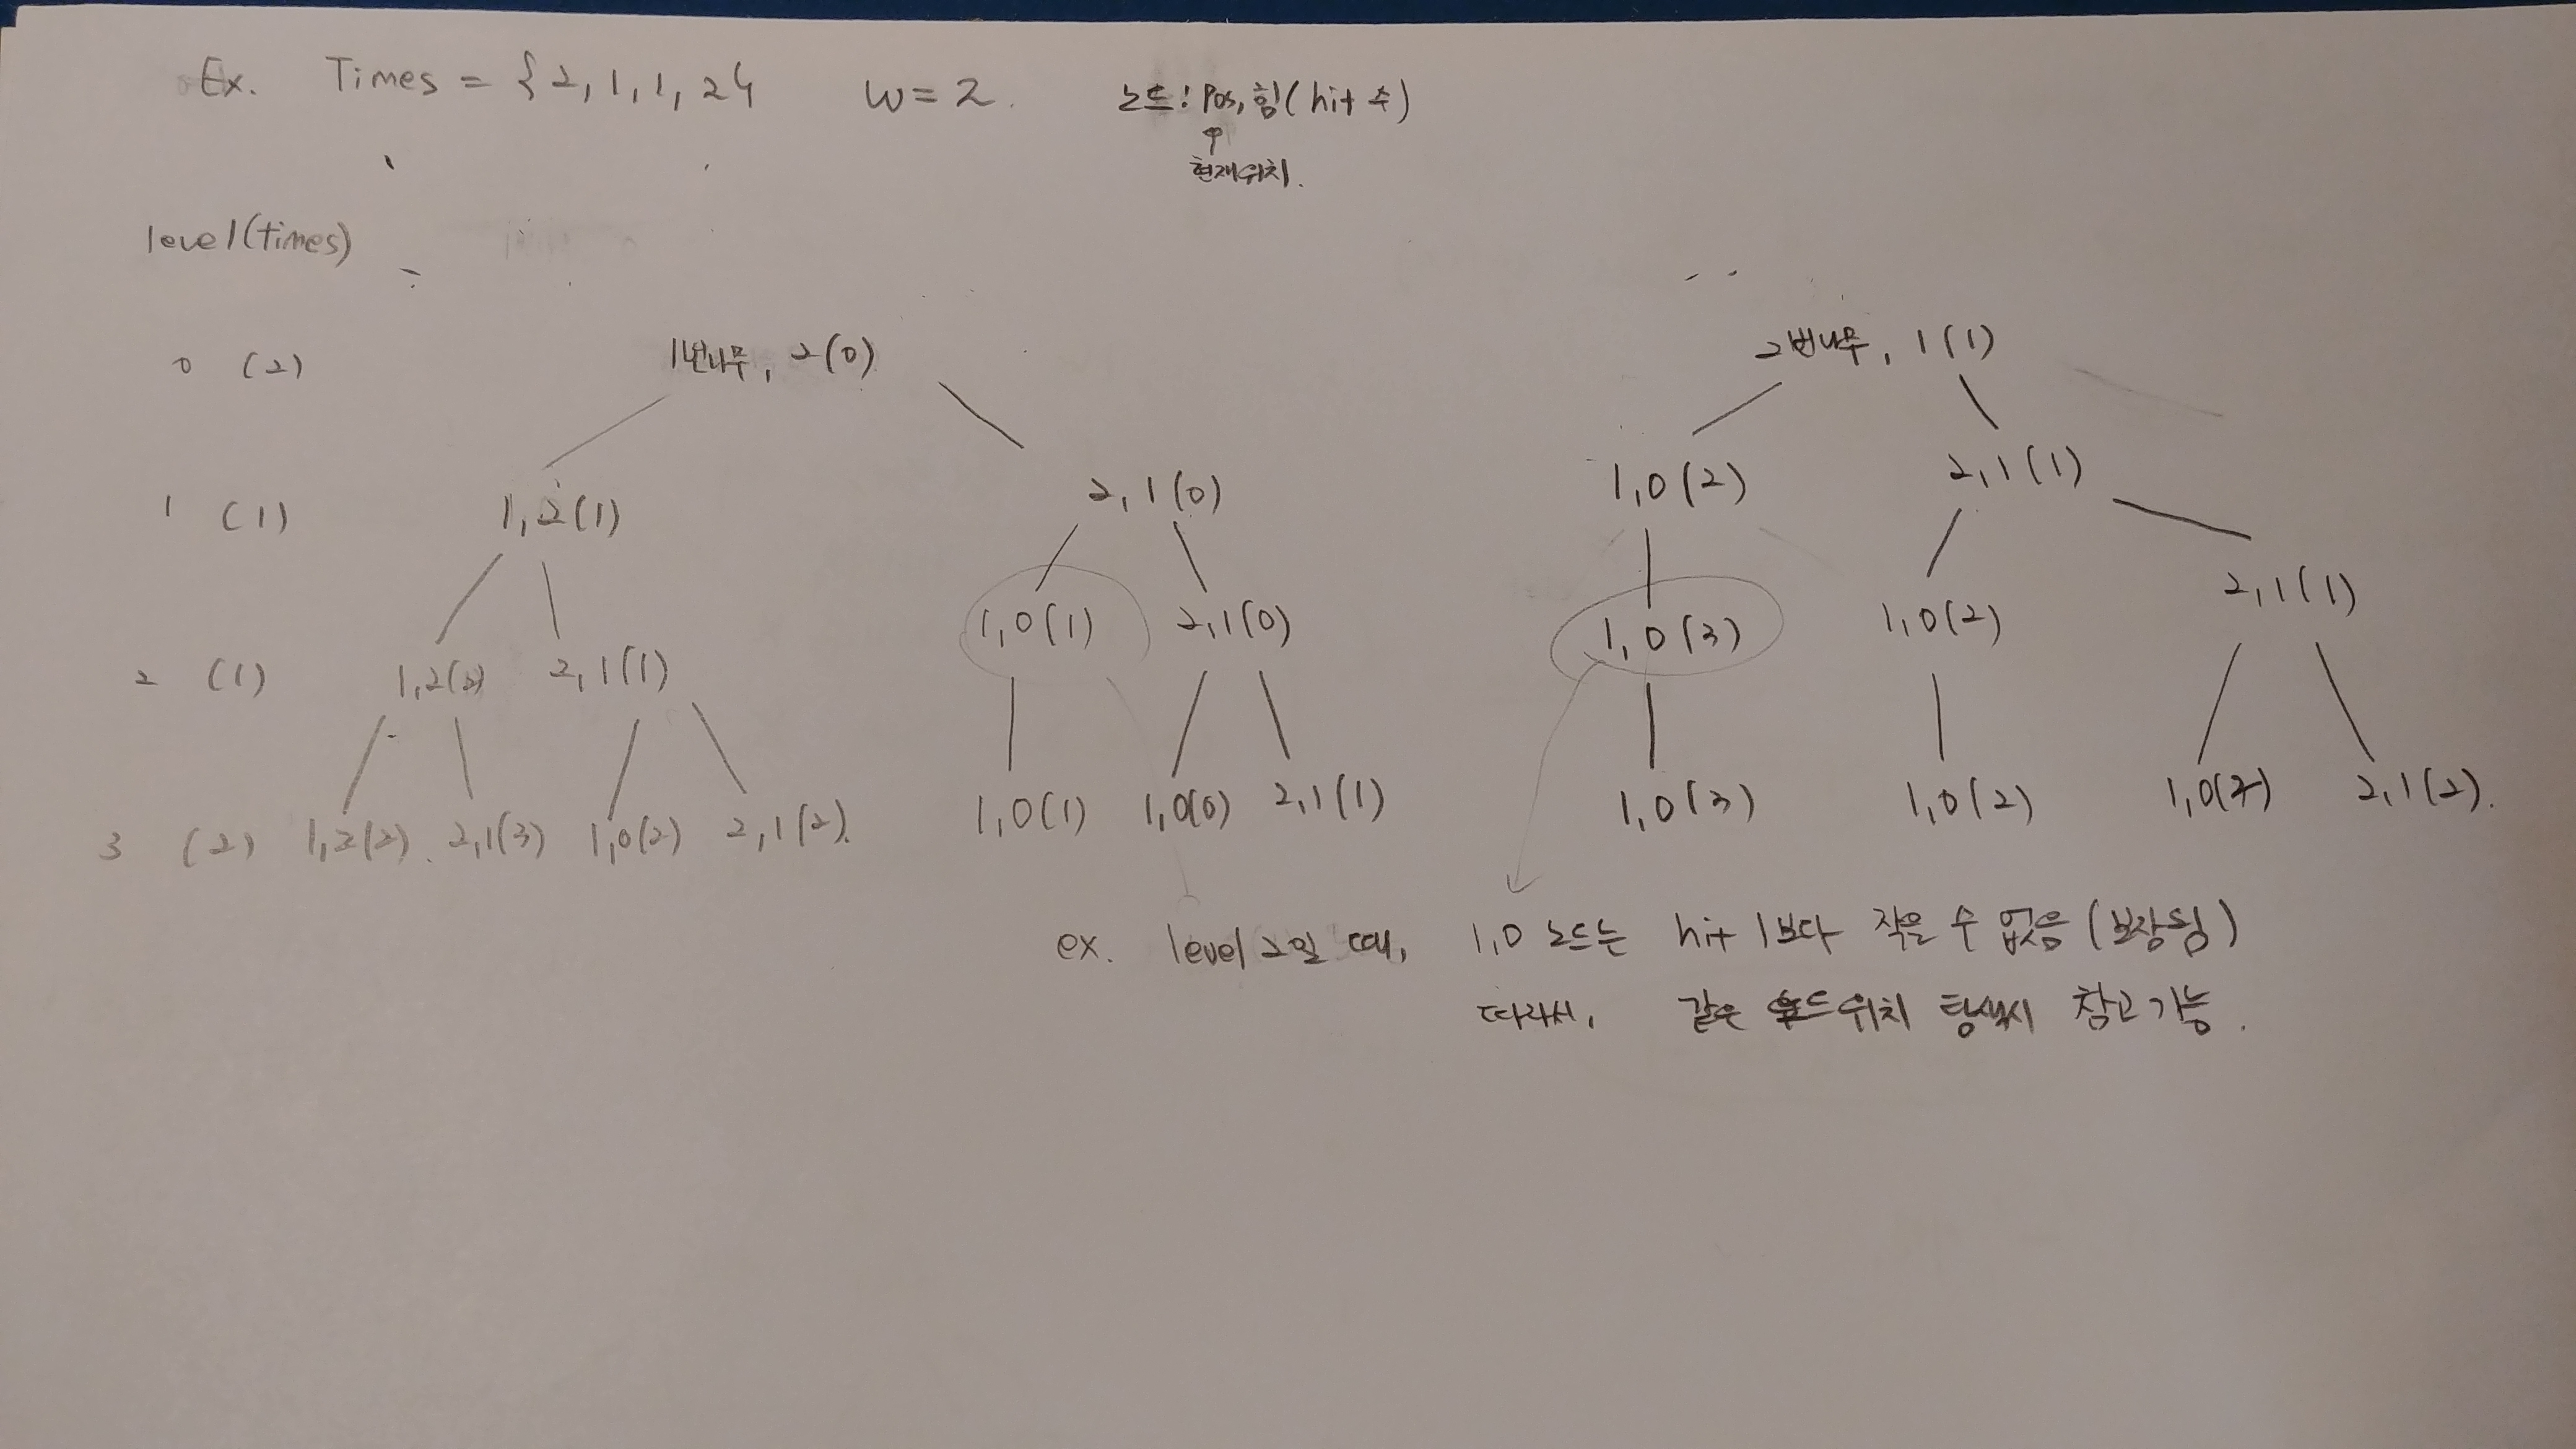 Ex. Times = {2, 1, 1, 2} W = 2. 노드 : Pos, 힘(hit 수)
현재위치.
level(times)
0 (2) 1번나무, 2(0) 2번나무, 1(1)
1 (1) 1,2(1) 2,1(0) 1,0(2) 2,1(1)
1,0(1) 2,1(0) 1,0(3) 1,0(2) 2,1(1)
2 (1) 1,2(2) 2,1(1)
1,0(1) 1,0(0) 2,1(1) 1,0(3) 1,0(2) 1,0(2) 2,1(2).
3 (2) 1,2(2). 2,1(3) 1,0(2) 2,1(2).
ex. level 2일 때, 1,0 노드는 hit 1보다 작을 수 없음 (보장됨)
따라서, 같은 노드 위치 탐색시 참고 가능.